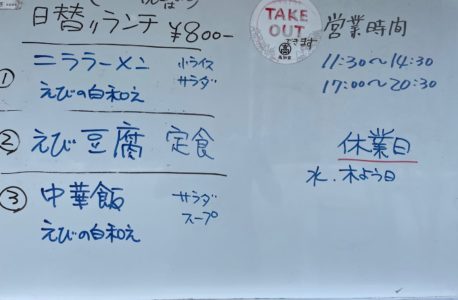 日替りランチ ¥800-
① ニララーメン 小ライス
サラダ
えびの白和え
② えび豆腐 定食
③ 中華飯 サラダ
スープ
えびの白和え
TAKE
OUT
できます
営業時間
11:30〜14:30
17:00〜20:30
休業日
水.木よう日